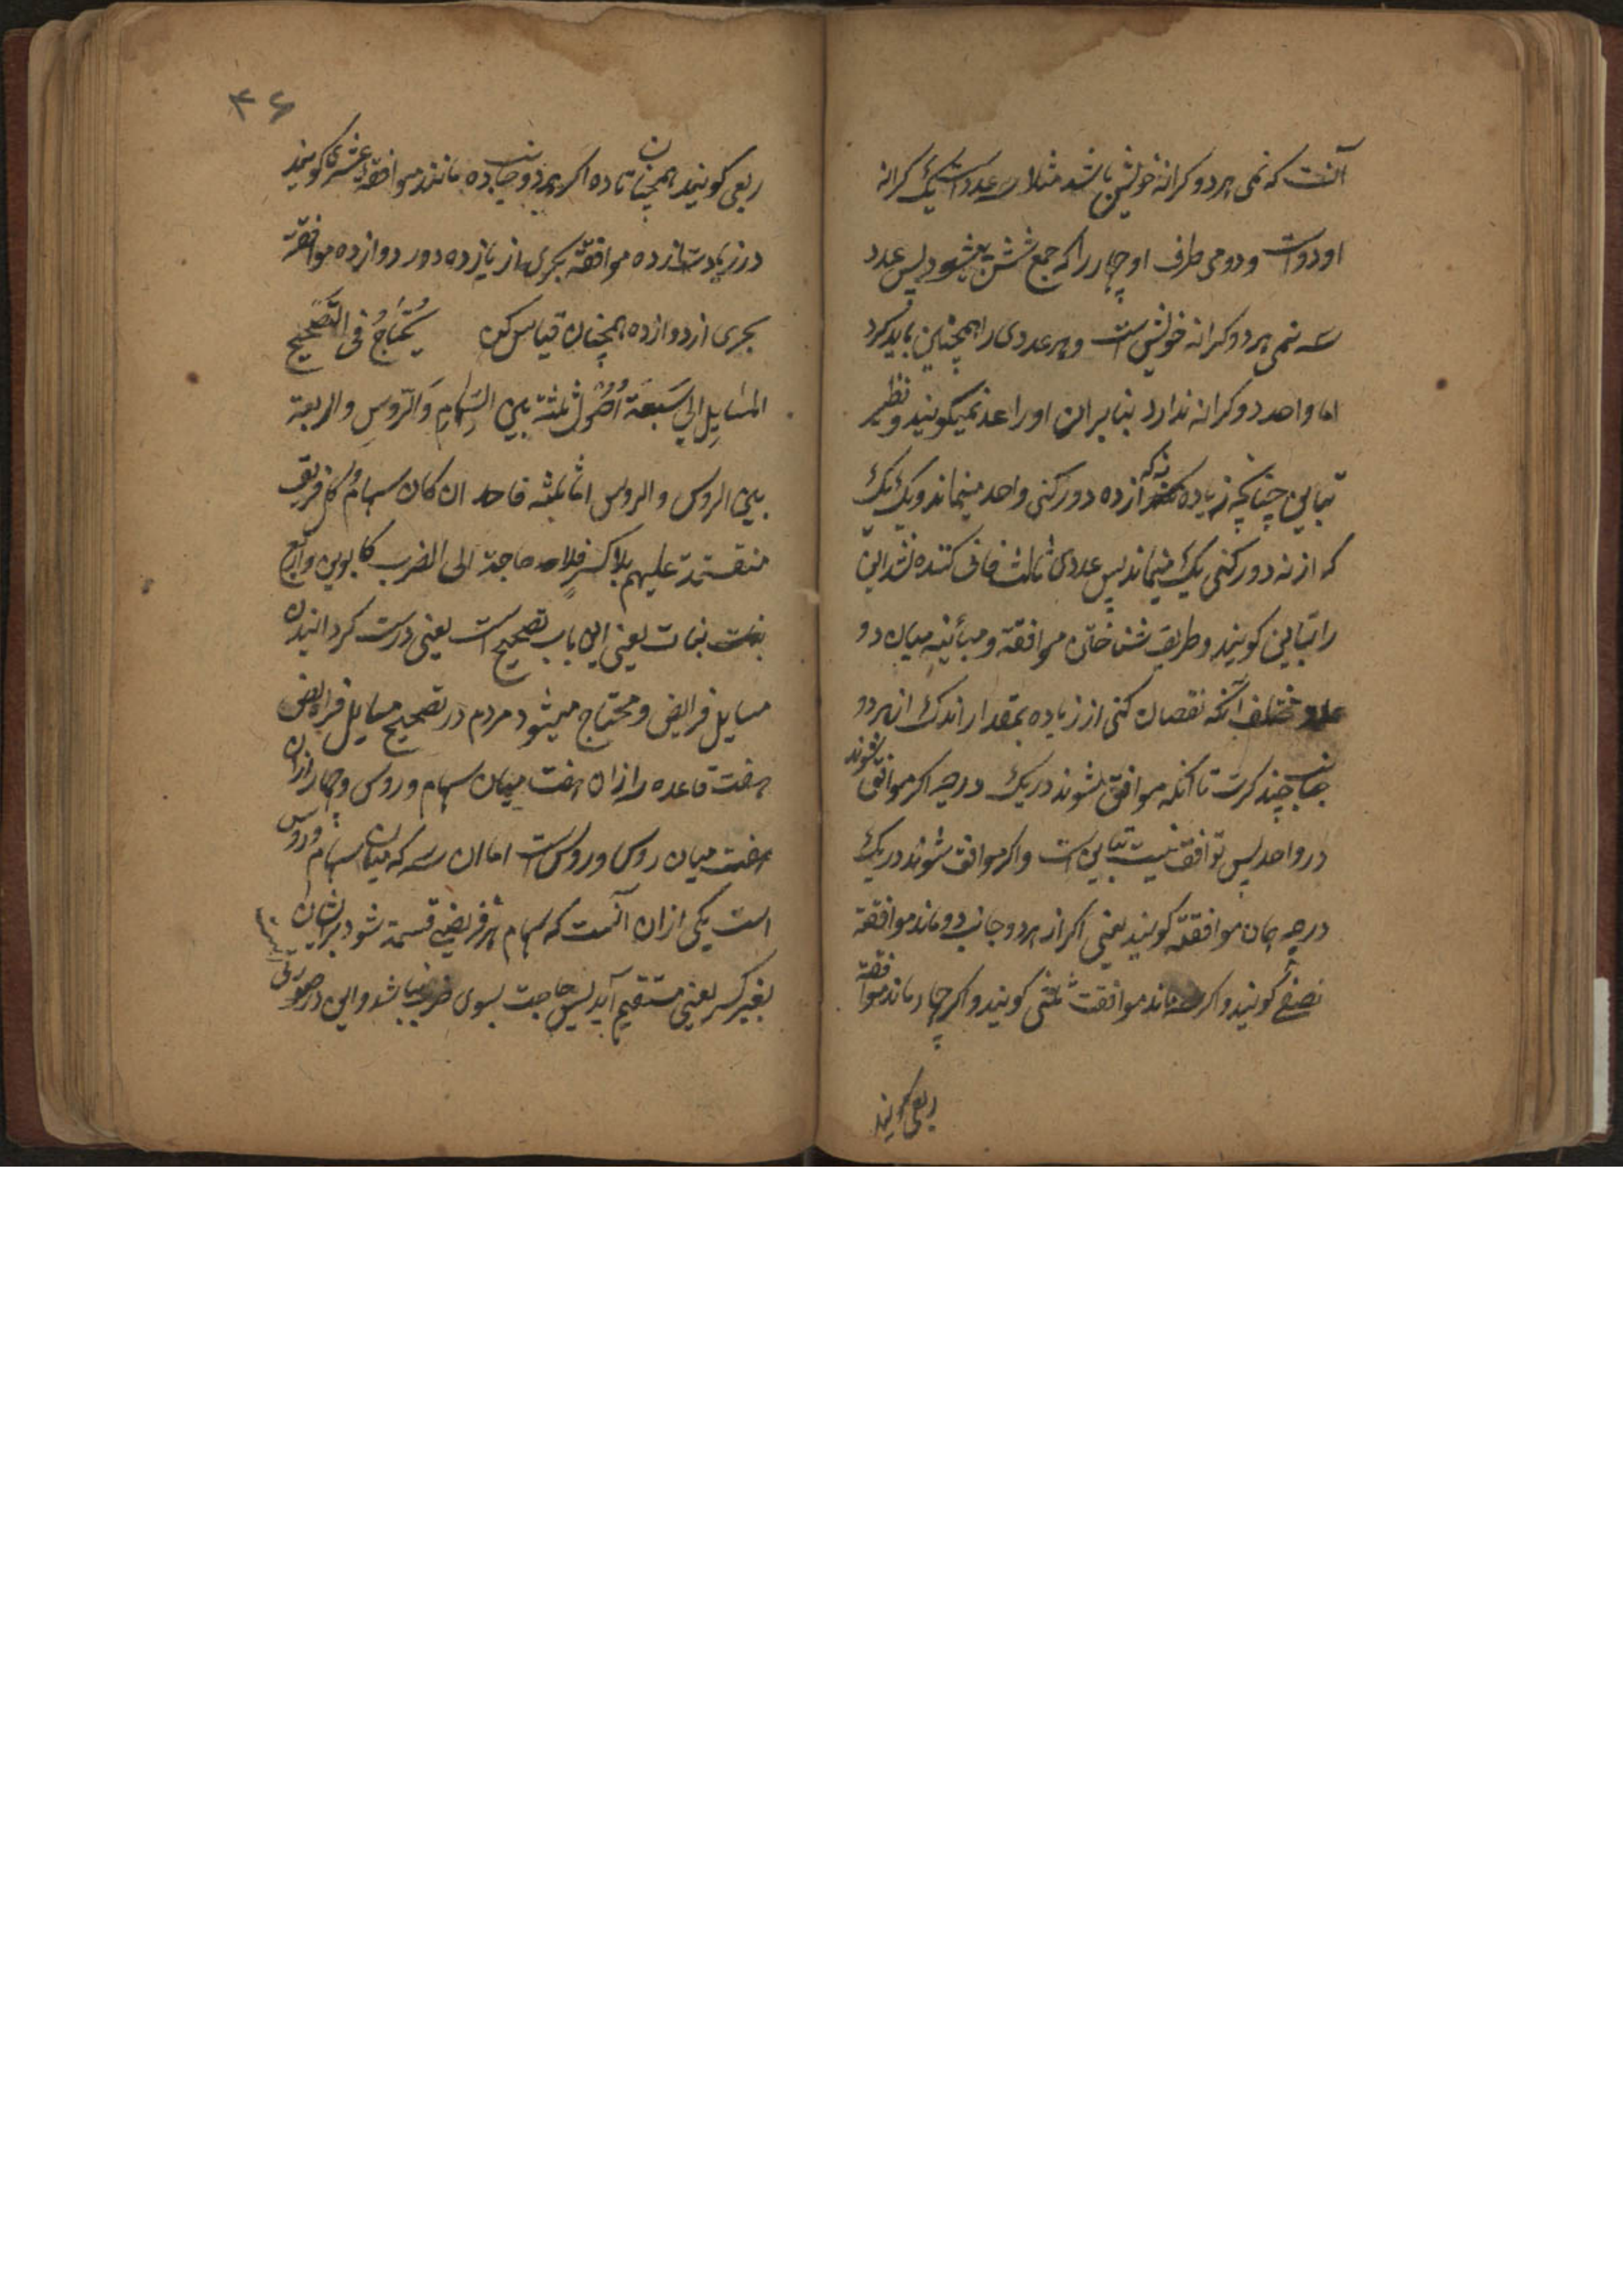 آنست که نمی هر دو کرانه خویش باشد مثلا سه عدد است یک کرانه
او دو است و دومی طرف او چهار را که جمع شش میشود پس عدد
سه نمی هر دو کرانه خویش است و هر عددی را همچنین باید کرد
اما واحد دو کرانه ندارد بنابران او را عدد نمیگویند و نظیر
تباین چنانچه زیاده نه که از ده دور کنی واحد میماند و یک یک
که از نه دور کنی یک میماند پس عددی ثالث فانی کننده نشد این
را تباین کویند و طریق شناختن موافقة و مبائنه میان دو
عدد مختلف آنکه نقصان کنی از زیاده بمقدار اندک از هر دو
جانب چند کرت تا آنکه موافق شوند در یک درجه اکر موافق شوند
در واحد پس توافق نیست تباین است و اکر موافق شوند در یک
درجه همان موافقة کویند یعنی اکر از هر دو جانب دو ماند موافقة
نصفی کویند و اکر سه ماند موافقت ثلثی کویند و اکر چهار ماند موافقة
ربعی کویند
۴۶
ربعی کویند همچنان تا ده اکر هر دو جانب ده مانند موافقة عشری کویند
در زیادت از ده موافقة بجزی از یازده و در دوازده موافقة
بجزی از دوازده همچنان قیاس کن یُحْتَاجُ فی التَصْحِیْحِ
المسَایِلِ الی سَبعَة اُصُولٍ ثلثة بین السِّهَامِ وَالرّوسِ والاربعة
بین الروس والروس اما ثلثه فاحد ان کان سهام کل فریق
منقسمة علیهم بلا کسر فلا حاجة الی الضرب کابوین واربع
بنات یعنی این باب تصحیح است یعنی درست کردانیدن
مسایل فرایض و محتاج میشود مردم در تصحیح مسایل فرایض
هفت قاعده را از ان هفت میان سهام و روس و چهار ازان
هفت میان روس و روس است اما ان سه که میان سهام و روس
است یکی ازان آنست که سهام هر فریضی قسمة شود بر ایشان
بغیر کسر یعنی مستقیم آید پس حاجت بسوی ضرب نباشد و این در صورتی